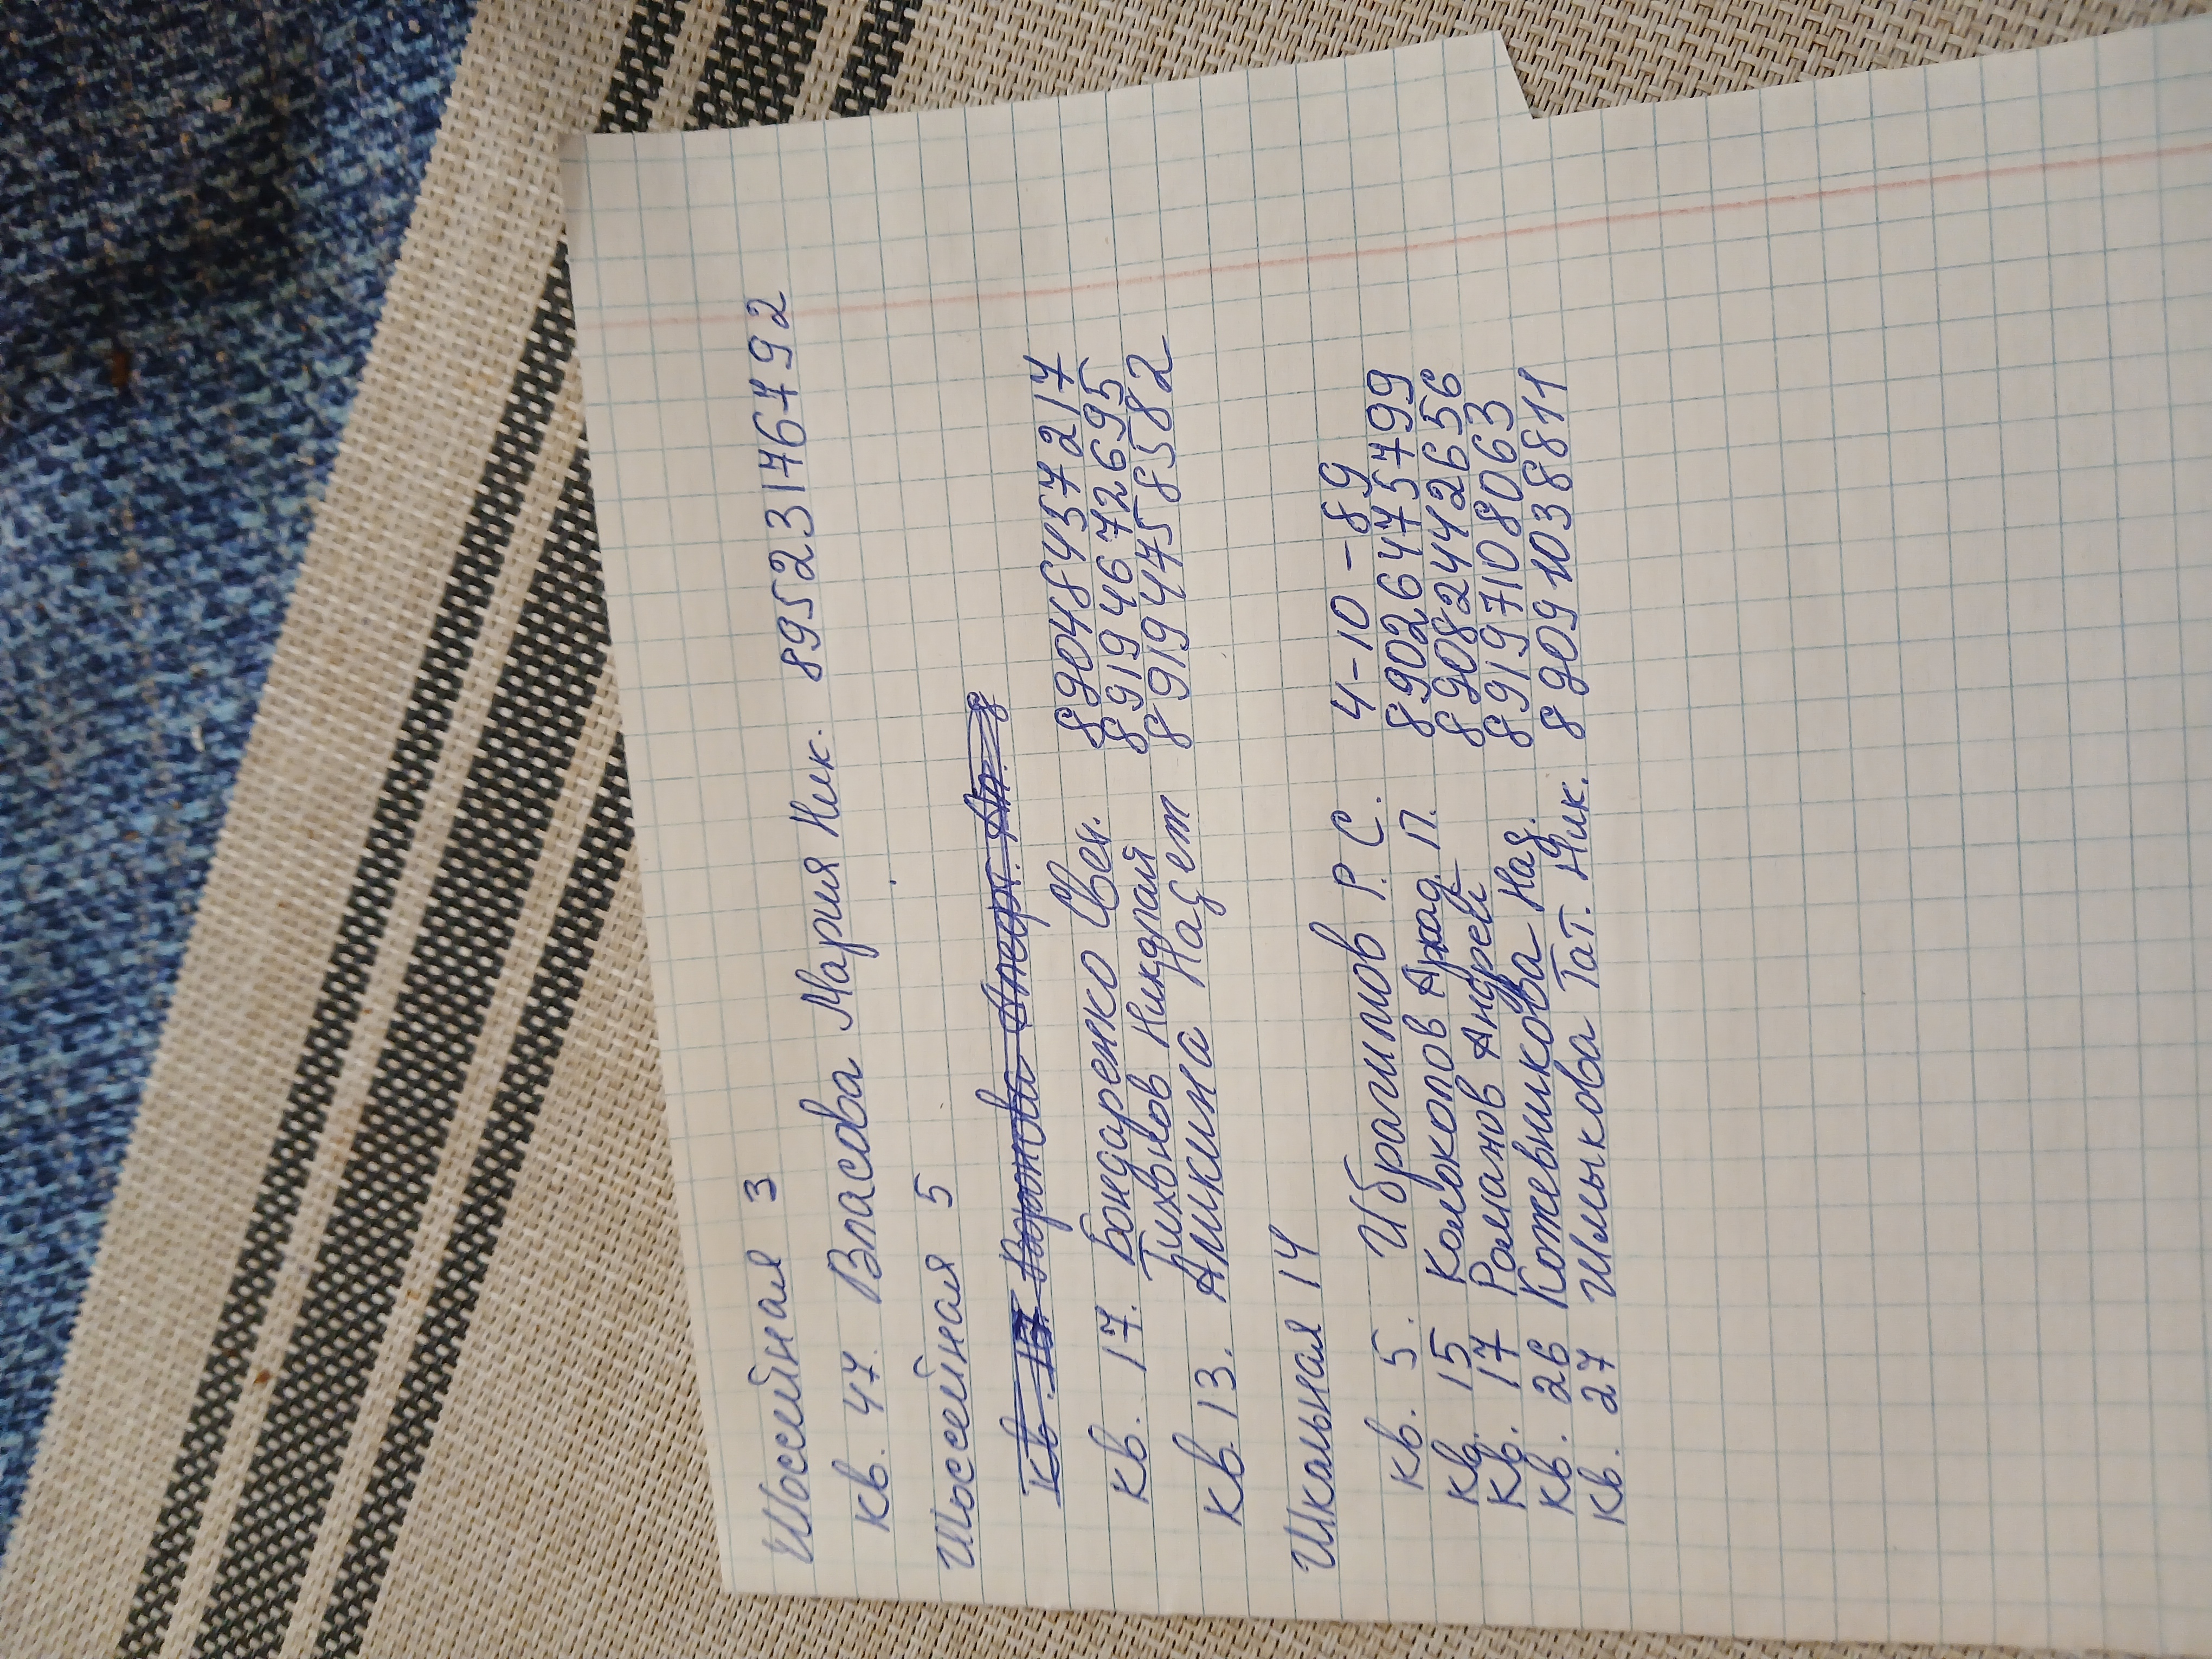 Шоссейная 3
кв. 47. Власова Мария Ник. 89523176792
Шоссейная 5
кв. 17. Бондаренко Свет. 89048437217
Тихонов Николай 89194672695
кв. 13. Аникина Надет 89194758582
Школьная 14
кв. 5. Ибрагимов Р. С. 4-10-89
кв. 15 Колокопов Аркад. П. 89026475799
кв. 17 Романов Андрей 89082442656
кв. 26 Кожевникова Над. 89197108063
кв. 27 Шмыкова Тат. Ник. 89091038811